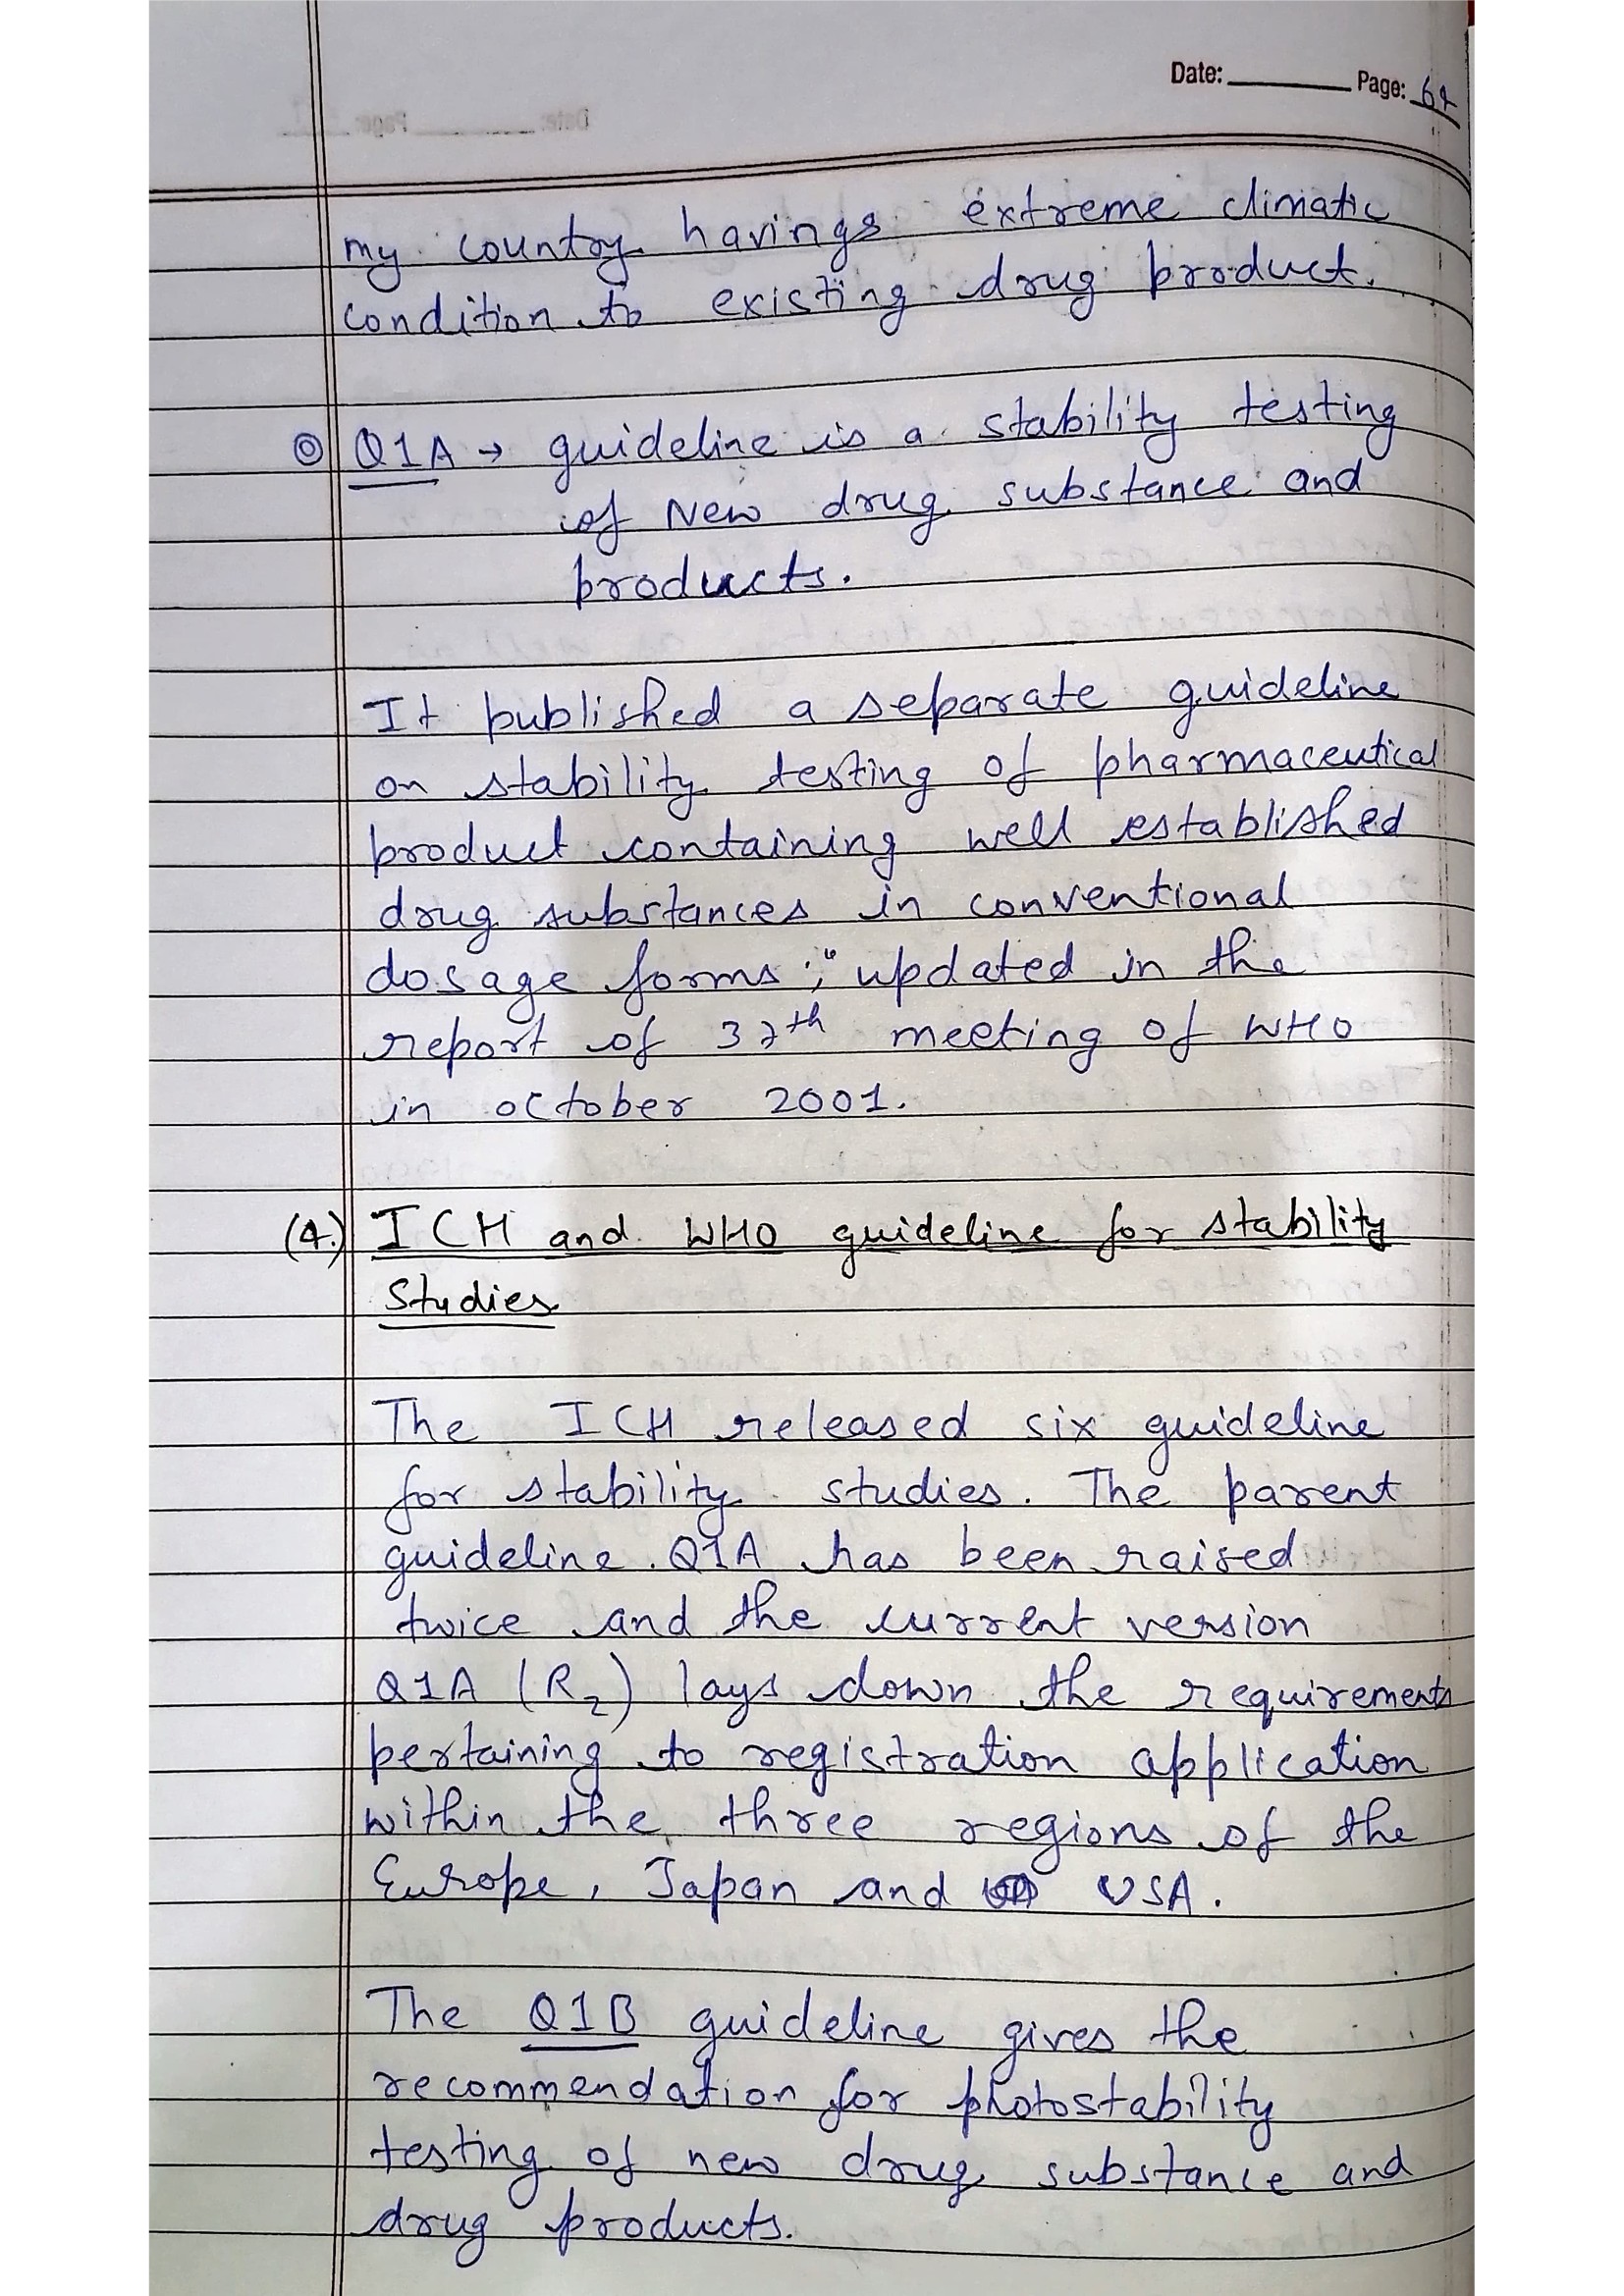 Date: Page: 62
my country havings extreme climatic
condition to existing drug product.
Q1A → guideline is a stability testing
of New drug substance and
products.
It published a separate guideline
on stability testing of pharmaceutical
product containing well established
drug substances in conventional
dosage forms ;" updated in the
report of 37th meeting of WHO
in october 2001.
(4.) ICH and WHO guideline for stability
Studies
The ICH released six guideline
for stability studies. The parent
guideline Q1A has been raised
twice and the current version
Q1A (R2) lays down the requirements
pertaining to registration application
within the three regions of the
Europe, Japan and USA.
The Q1B guideline gives the
recommendation for photostability
testing of new drug substance and
drug products.